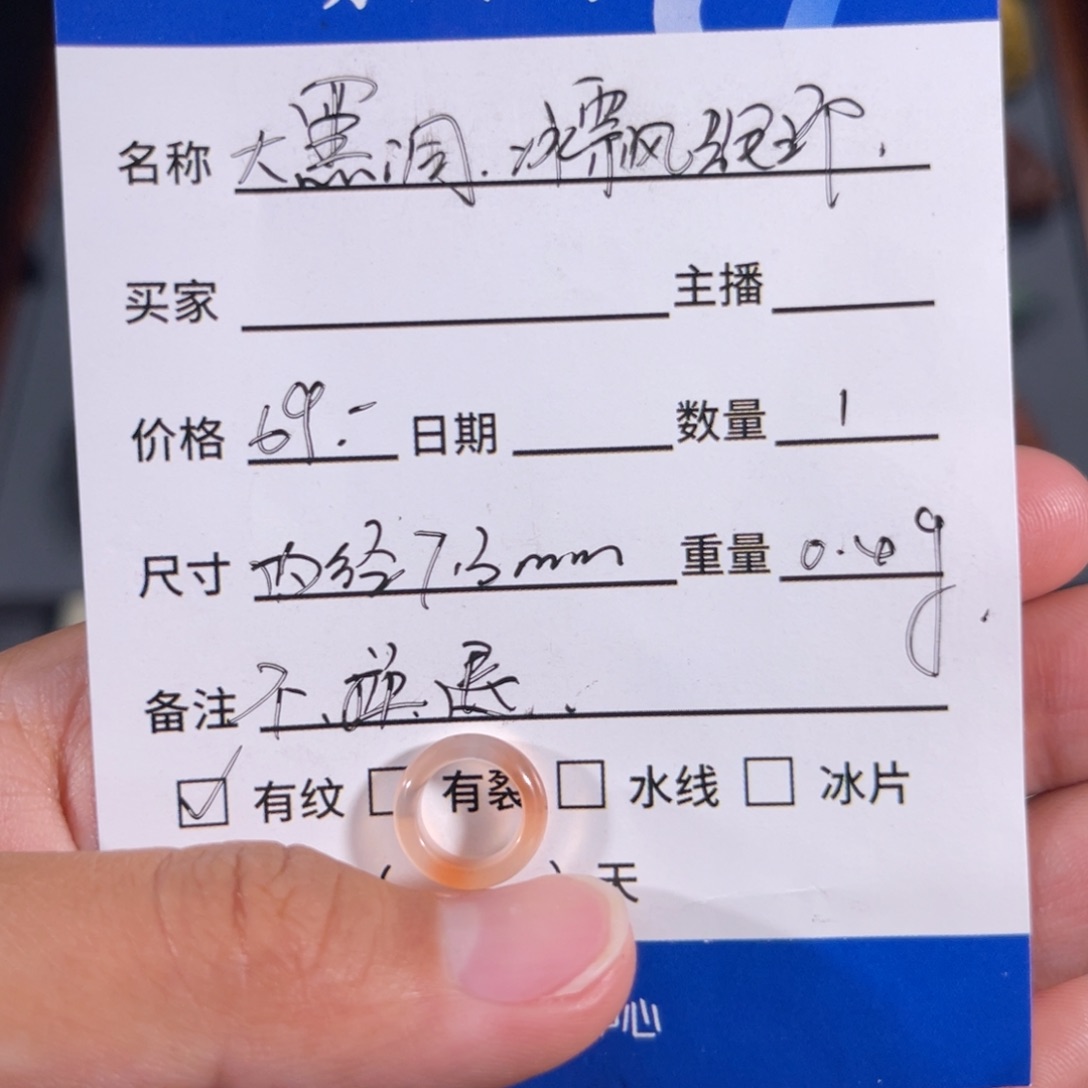 名称 大黑洞.冰飘细环.
买家 主播
价格 69.- 日期 数量 1
尺寸 内径7.3mm 重量 0.4g
备注 不.退.
有纹 有裂 水线 冰片
( ) 天
心